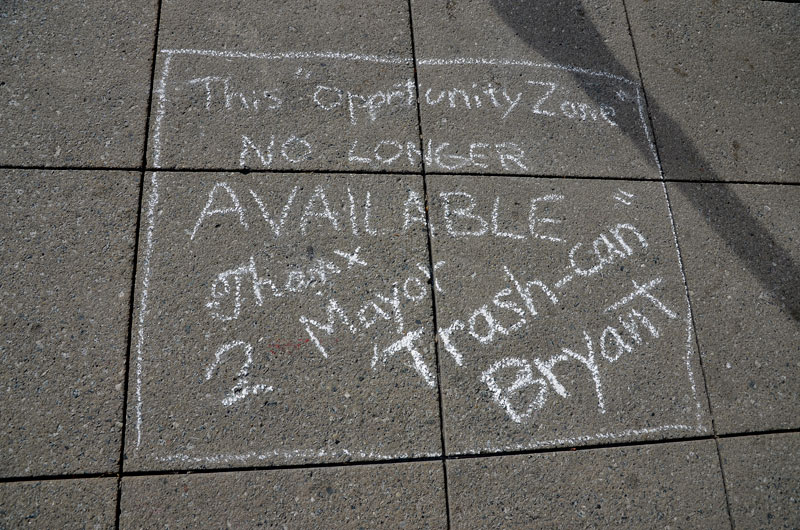 This "Opportunity Zone"
NO LONGER
AVAILABLE
Thanx
2 Mayor
"Trash-can"
Bryant